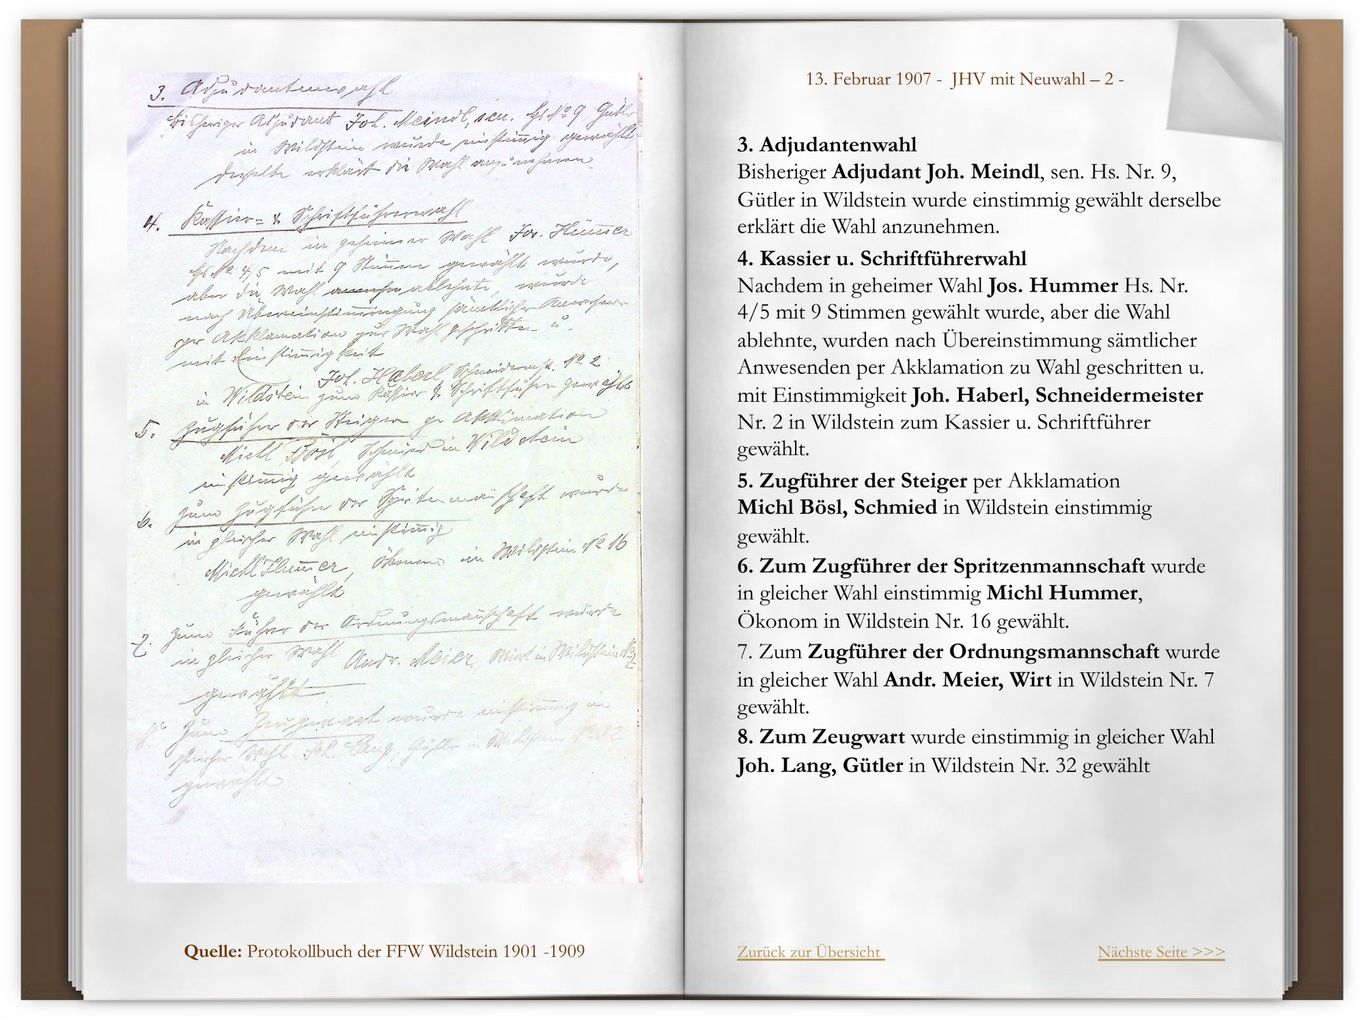 3. Adjudantenwahl
bisheriger Adjudant Joh. Meindl, sen. Hs. No 9 Gütler
in Wildstein wurde einstimmig gewählt
derselbe erklärt die Wahl anzunehmen
4. Kassier= & Schriftführerwahl
Nachdem in geheimer Wahl Jos. Hummer
Hs. No 4/5 mit 9 Stimmen gewählt wurde,
aber die Wahl ablehnte, wurde
nach Übereinstimmung sämtlicher Anwesender
per Akklamation zur Wahl geschritten u.
mit Einstimmigkeit
Joh. Haberl Schneidermst. No 2
in Wildstein zum Kassier & Schriftführer gewählt
5. Zugführer der Steiger per Akklamation
Michl Bösl Schmied in Wildstein
einstimmig gewählt
6. Zum Zugführer der Spritzenmannschaft wurde
in gleicher Wahl einstimmig
Michl Hummer, Ökonom in Wildstein No 16
gewählt
7. Zum Führer der Ordnungsmannschaft wurde
in gleicher Wahl Andr. Meier, Wirt in Wildstein No 7
gewählt
8. Zum Zeugwart wurde einstimmig in
gleicher Wahl Joh. Lang, Gütler in Wildstein No 32
gewählt
Quelle: Protokollbuch der FFW Wildstein 1901 -1909
13. Februar 1907 - JHV mit Neuwahl – 2 -
3. Adjudantenwahl
Bisheriger Adjudant Joh. Meindl, sen. Hs. Nr. 9,
Gütler in Wildstein wurde einstimmig gewählt derselbe
erklärt die Wahl anzunehmen.
4. Kassier u. Schriftführerwahl
Nachdem in geheimer Wahl Jos. Hummer Hs. Nr.
4/5 mit 9 Stimmen gewählt wurde, aber die Wahl
ablehnte, wurden nach Übereinstimmung sämtlicher
Anwesenden per Akklamation zu Wahl geschritten u.
mit Einstimmigkeit Joh. Haberl, Schneidermeister
Nr. 2 in Wildstein zum Kassier u. Schriftführer
gewählt.
5. Zugführer der Steiger per Akklamation
Michl Bösl, Schmied in Wildstein einstimmig
gewählt.
6. Zum Zugführer der Spritzenmannschaft wurde
in gleicher Wahl einstimmig Michl Hummer,
Ökonom in Wildstein Nr. 16 gewählt.
7. Zum Zugführer der Ordnungsmannschaft wurde
in gleicher Wahl Andr. Meier, Wirt in Wildstein Nr. 7
gewählt.
8. Zum Zeugwart wurde einstimmig in gleicher Wahl
Joh. Lang, Gütler in Wildstein Nr. 32 gewählt
Zurück zur Übersicht
Nächste Seite >>>